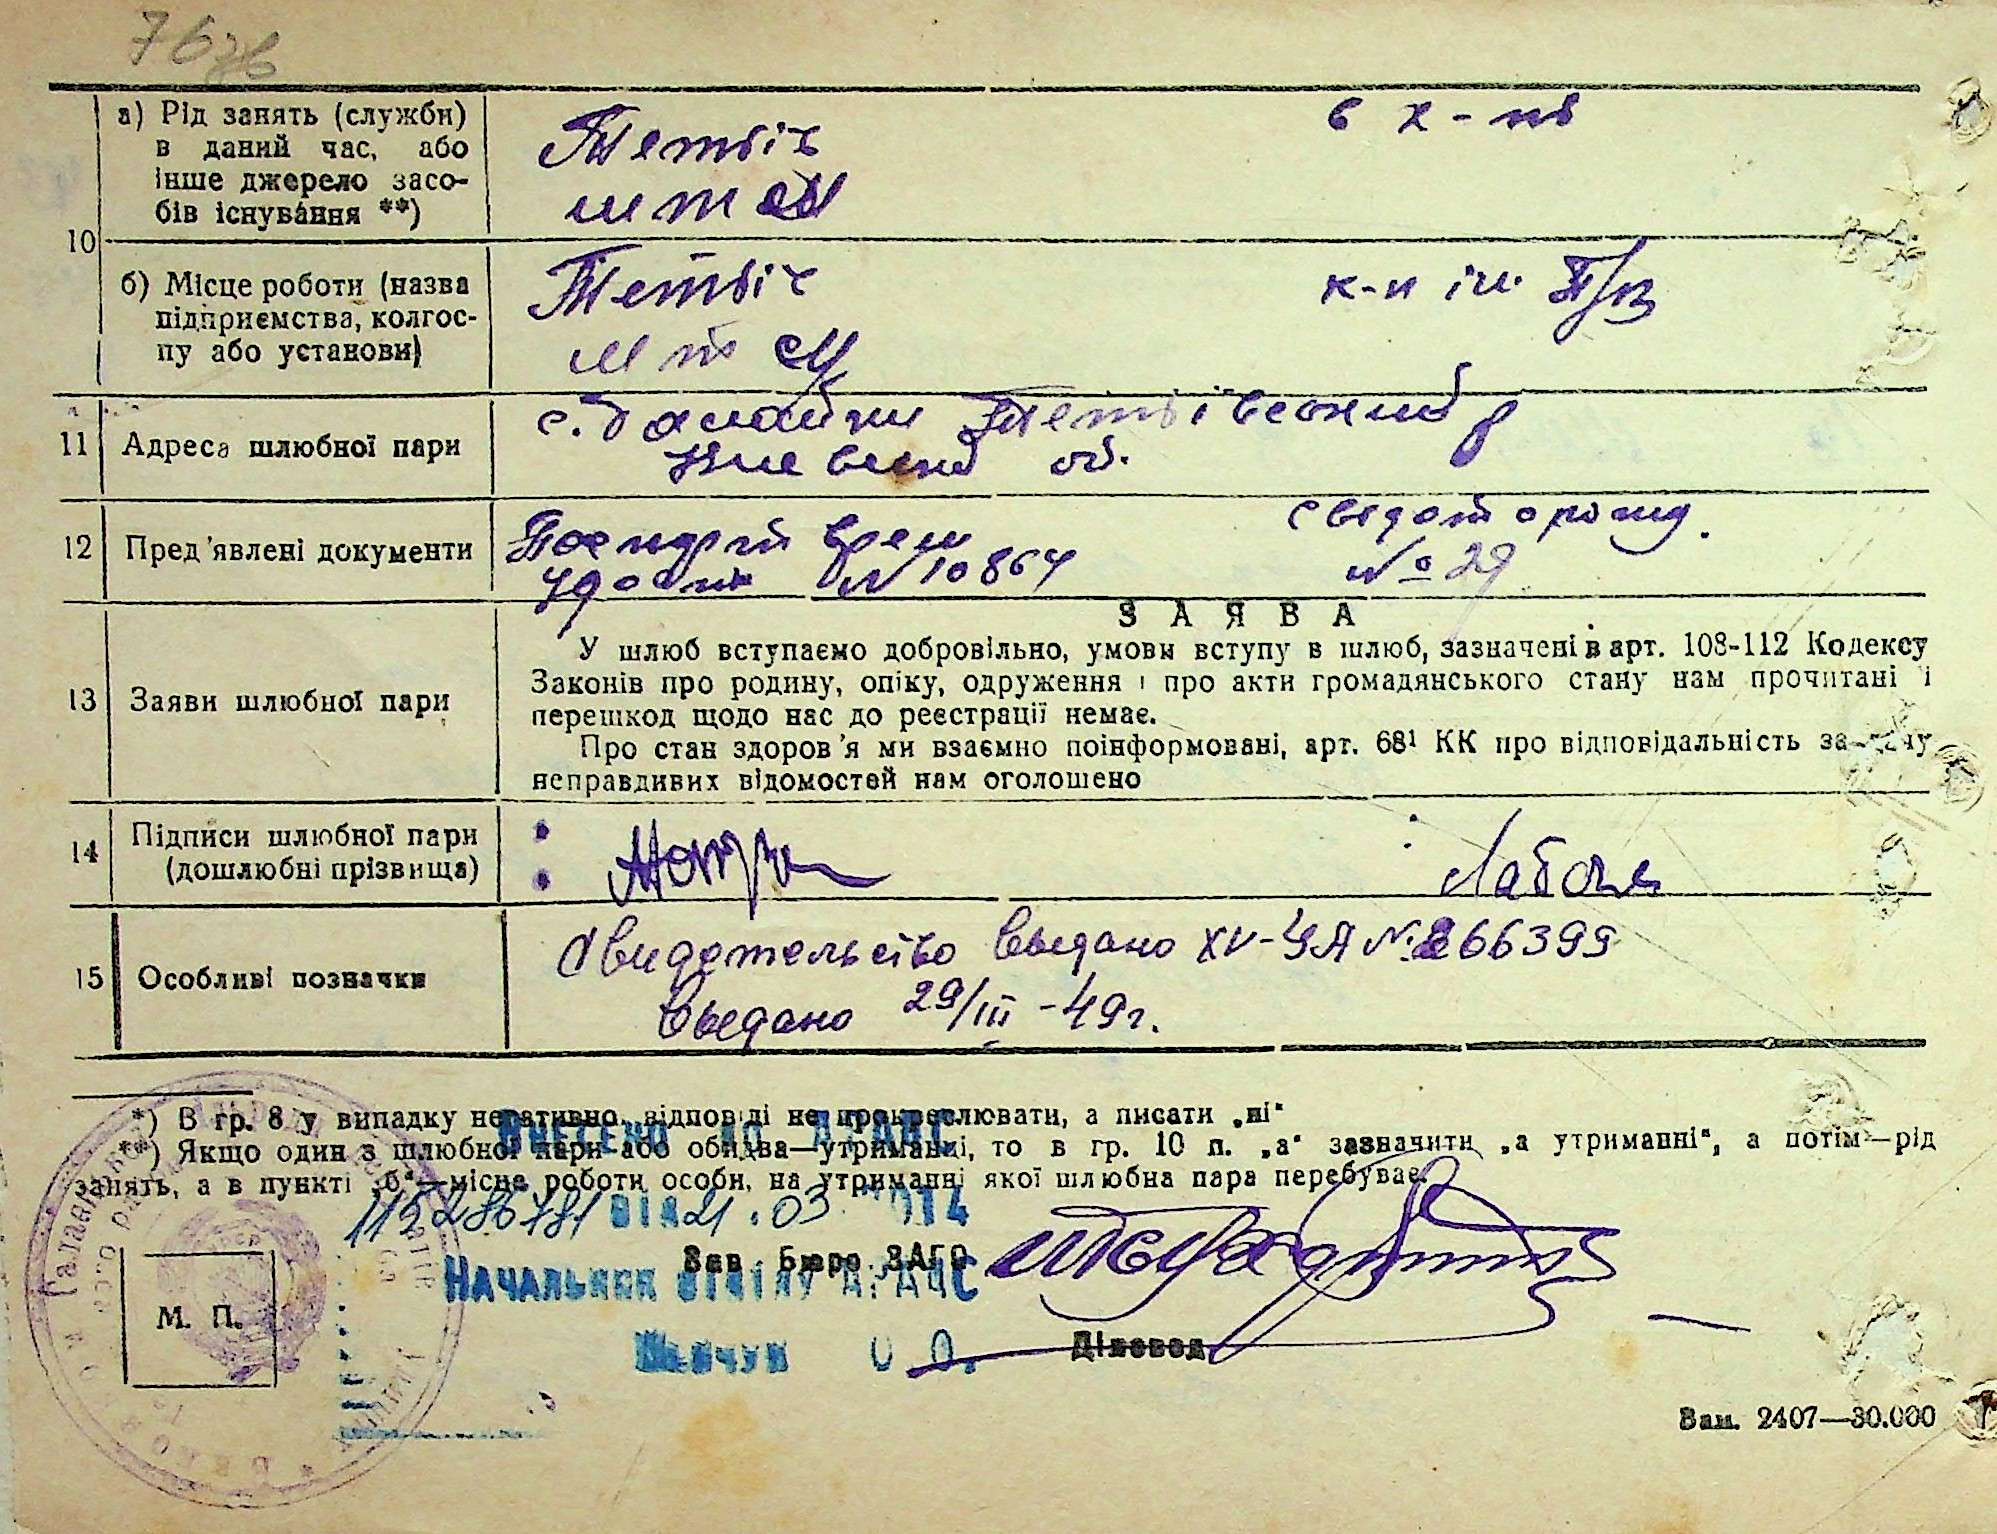 76зв
а) Рід занять (служби)
в даний час, або
інше джерело засо-
бів існування **)
Тетвіїв
в х-ві
10
б) Місце роботи (назва
підприємства, колгос-
пу або установи)
Тетвіїв
к-п ім.
11 Адреса шлюбної пари
с. Галайки Тетіївський р
Киевськ об.
12 Пред'явлені документи
удост № 10864
свідот о рожд.
№ 29
З А Я В А
13 Заяви шлюбної пари
У шлюб вступаємо добровільно, умови вступу в шлюб, зазначені в арт. 108-112 Кодексу
Законів про родину, опіку, одруження і про акти громадянського стану нам прочитані і
перешкод щодо нас до реєстрації немає.
Про стан здоров'я ми взаємно поінформовані, арт. 68¹ КК про відповідальність за дачу
неправдивих відомостей нам оголошено
14 Підписи шлюбної пари
(дошлюбні прізвища)
15 Особливі позначки
Свидетельство выдано XV-ЧЯ № 266399
Выдано 29/III-49г.
*) В гр. 8 у випадку негативно відповіді не прокреслювати, а писати „ні“
Внесено до ДРАЦС
**) Якщо один з шлюбної пари або обидва—утриманці, то в гр. 10 п. „а“ зазначити „а утриманні“, а потім—рід
занять, а в пункті „б“—місце роботи особи, на утриманні якої шлюбна пара перебуває.
від 21.03 2014
Зав. Бюро ЗАГС
Начальник відділу ДРАЦС
М. П.
Шевчук О О.
Діловод
Зам. 2407—30.000